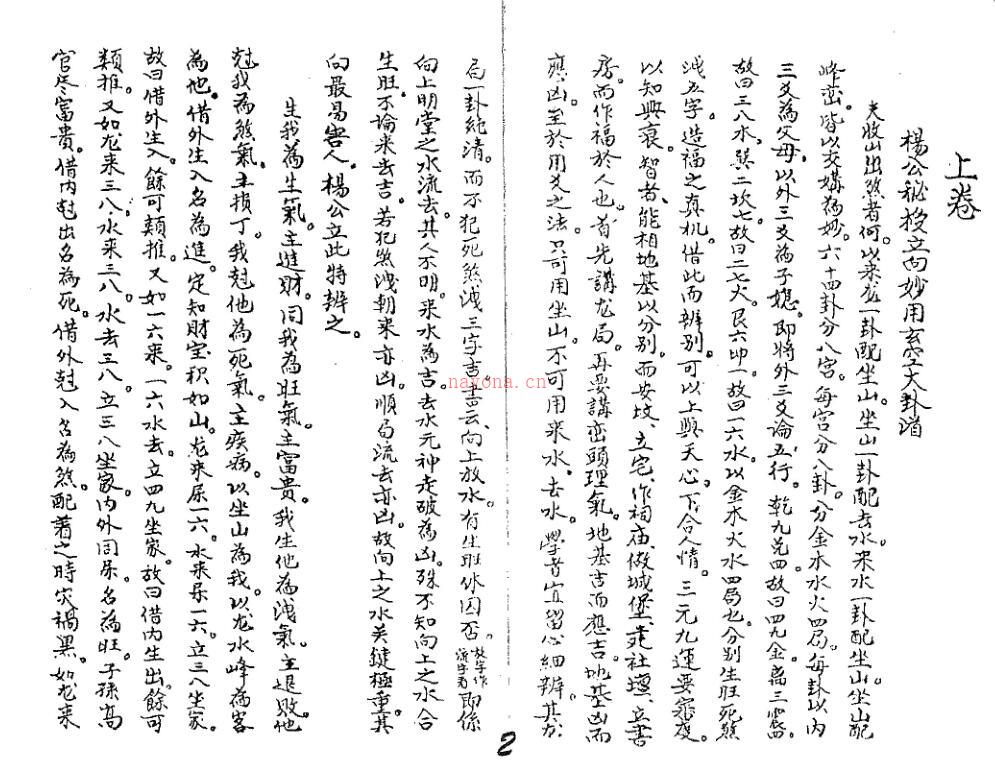 上卷
楊公秘授立向妙用玄空大卦道
夫收山出煞者何以来龙一卦配坐山坐山一卦配去水来水一卦配坐山坐山配
峰峦。皆以交媾為妙。六十四卦分八宮。每宮分八卦。分金木水火四局。每卦以内
三爻為父母。以外三爻為子媳。即將外三爻論五行。乾九兑四故曰四九金。离三震八
故曰三八木。巽二坎七故曰二七火。艮六坤一故曰一六水以金木火水四局也。分别生旺死煞
洩五字。造福之真机。借此而辨别。可以上與天心。下合人情。三元九運要
以知興衰。智者能相地基以分别。而安坟、立宅、作祠庙、做城堡、建社壇、立書
房。而作福於人也。首先講龙局。再要講峦頭理氣。地基吉而應吉。地基凶而
應凶。至於用爻之法。只可用坐山。不可用来水。去水。學者宜留心細辨。其
局一卦純清。而不犯死煞洩三字吉書云、向上放水。有生旺休囚否。即係
向上明堂之水流去。其人不明。来水為吉。去水元神走破為凶。殊不知向上之水合
生旺。不論来去吉。若犯煞洩朝来亦凶。順局流去亦凶。故向上之水关鍵極重。其
向最易害人。楊公立此特辨之。
生我為生氣。主進財。同我為旺氣。主富贵。我生他為洩氣。主退敗他
尅我為煞氣。主損丁。我尅他為死氣。主疾病。以坐山為我。以龙水峰為客
為他。借外生入名為進。定知財宝积如山。龙来一六。水来一六。立三八坐家。
故曰借外生入。餘可類推。又如一六来。一六水去。立四九坐家。故曰借内生出餘可
類推。又如龙来三八。水来三八。水去三八。立三八坐家内外同。名為旺。子孫高
官尽富贵。借内尅出名為死。借外尅入名為煞。配著之時灾禍累。如龙来
nayona.cn
2